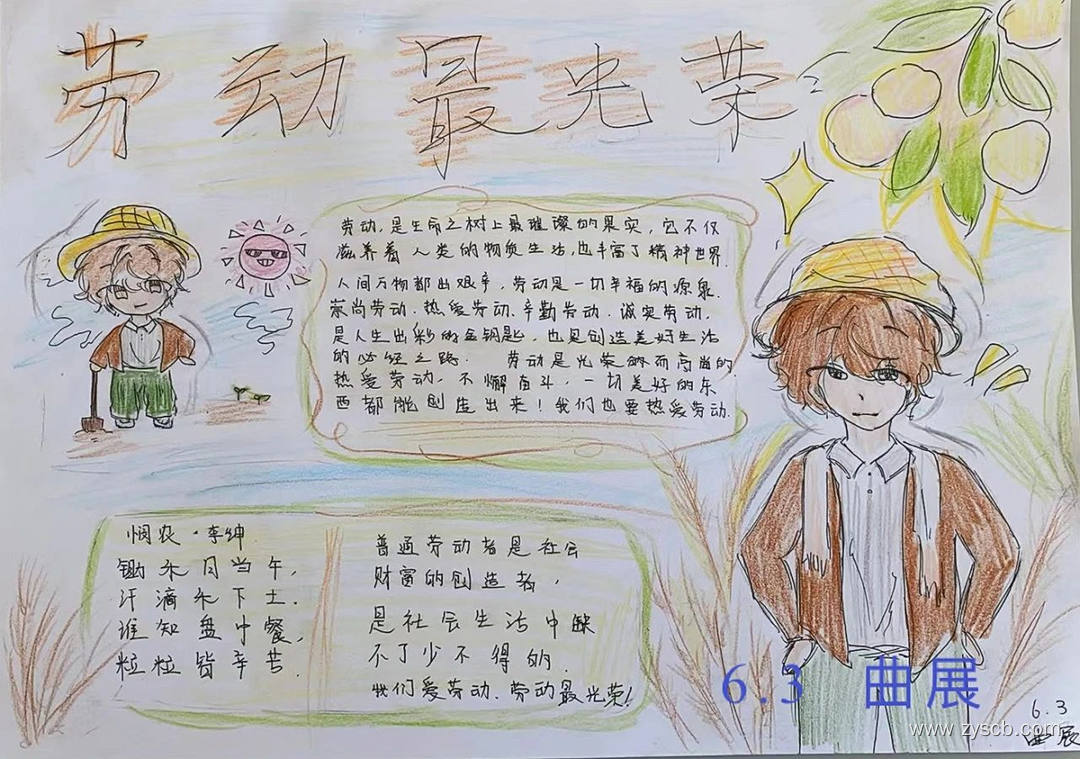 劳动最光荣
劳动,是生命之树上最璀璨的果实,它不仅
滋养着人类的物质生活,也丰富了精神世界.
人间万物都出艰辛,劳动是一切幸福的源泉.
崇尚劳动.热爱劳动.辛勤劳动.诚实劳动.
是人生出彩的金钥匙,也是创造美好生活
的必经之路. 劳动是光荣的而高尚的
热爱劳动,不懈奋斗,一切美好的东
西都能创造出来!我们也要热爱劳动.
悯农·李绅
锄禾日当午,
汗滴禾下土.
谁知盘中餐,
粒粒皆辛苦.
普通劳动者是社会
财富的创造者,
是社会生活中缺
不了少不得的.
我们爱劳动.劳动最光荣!
6.3 曲展
6.3
曲展
www.zyscb.com